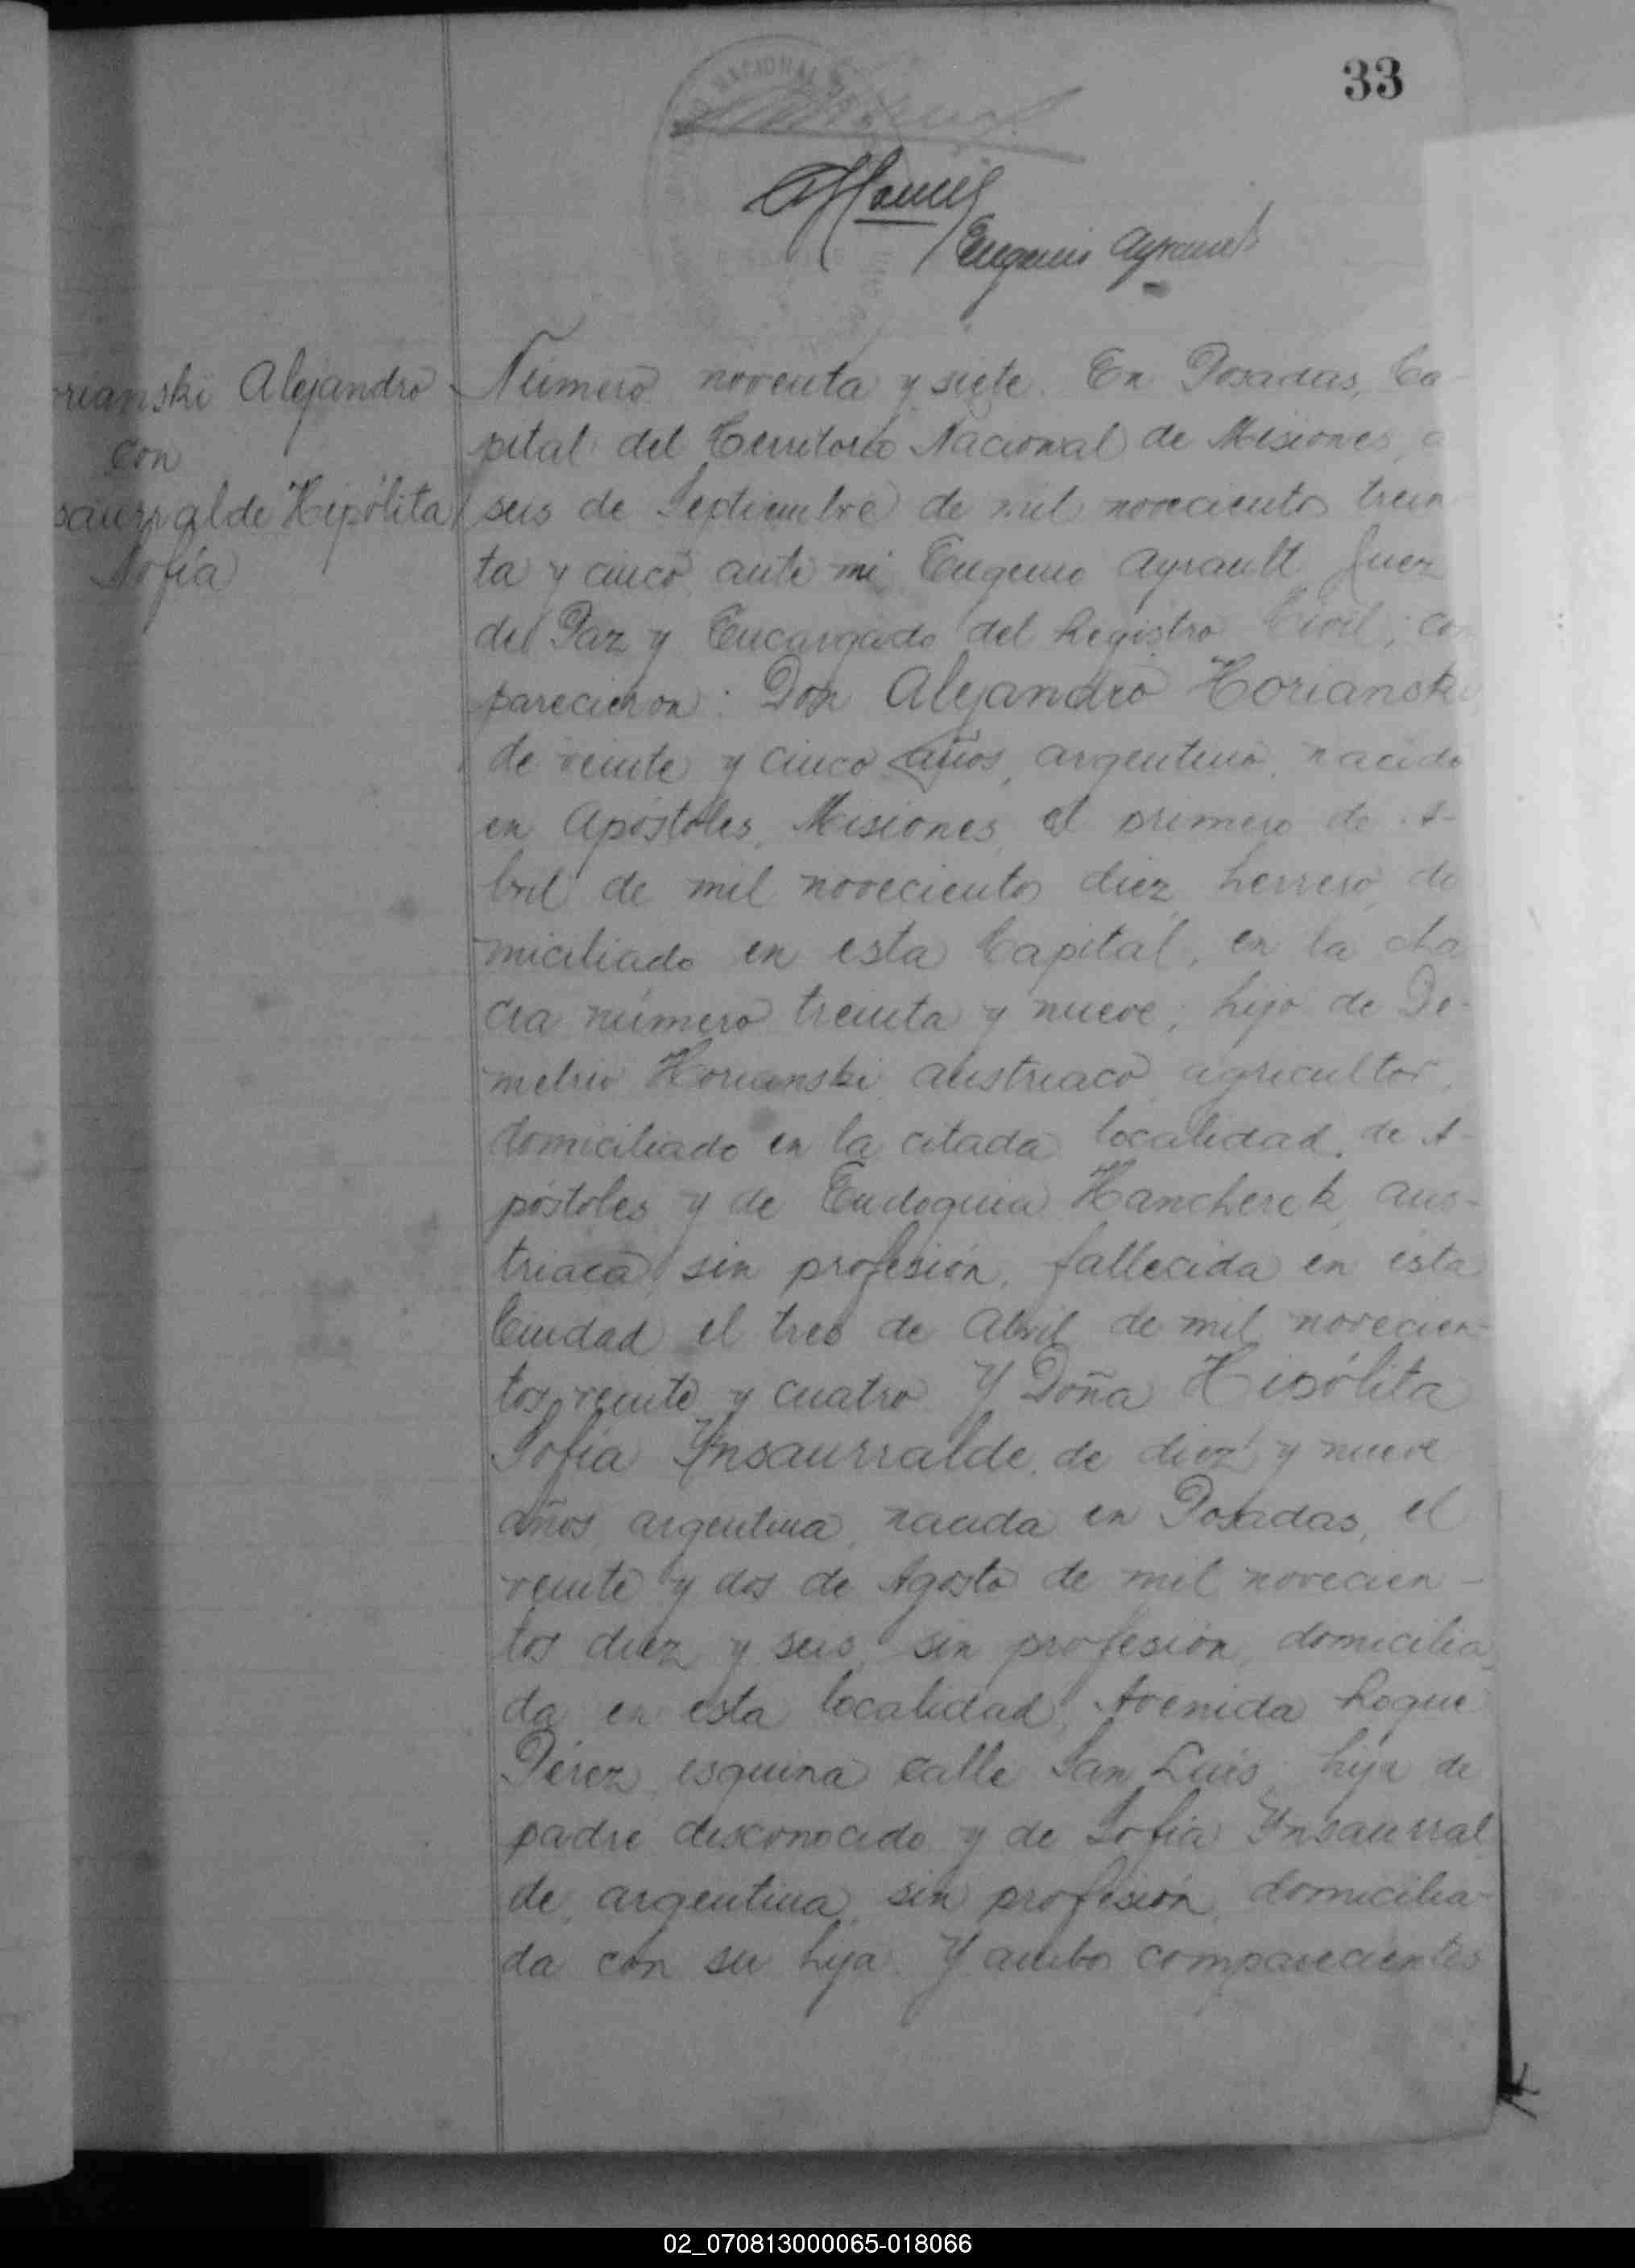 33
Eugenio Ayrault
rianski Alejandro
con
saurralde Hipólita
Sofía
Número noventa y siete. En Posadas, Ca-
pital del Territorio Nacional de Misiones, a
seis de Septiembre de mil novecientos trein
ta y cinco, ante mi Eugenio Ayrault Juez
de Paz y Encargado del Registro Civil; com
parecieron: Don Alejandro Horianski,
de veinte y cinco años, argentino, nacido
en Apóstoles, Misiones, el primero de A-
bril de mil novecientos diez, herrero, do
miciliado en esta Capital, en la cha
cra número treinta y nueve; hijo de De-
metrio Horianski, austriaco, agricultor,
domiciliado en la citada localidad de A-
póstoles y de Eudoquia Hancherek, aus-
triaca, sin profesión, fallecida en esta
Ciudad el tres de Abril de mil novecien-
tos veinte y cuatro. Y Doña Hipólita
Sofía Ynsaurralde, de diez y nueve
años, argentina, nacida en Posadas, el
veinte y dos de Agosto de mil novecien-
tos diez y seis, sin profesión, domicilia
da en esta localidad, Avenida Roque
Pérez esquina calle San Luis, hija de
padre desconocido y de Sofía Ynsaurral
de, argentina, sin profesión, domicilia-
da con su hija. Y ambos comparecientes
02_070813000065-018066